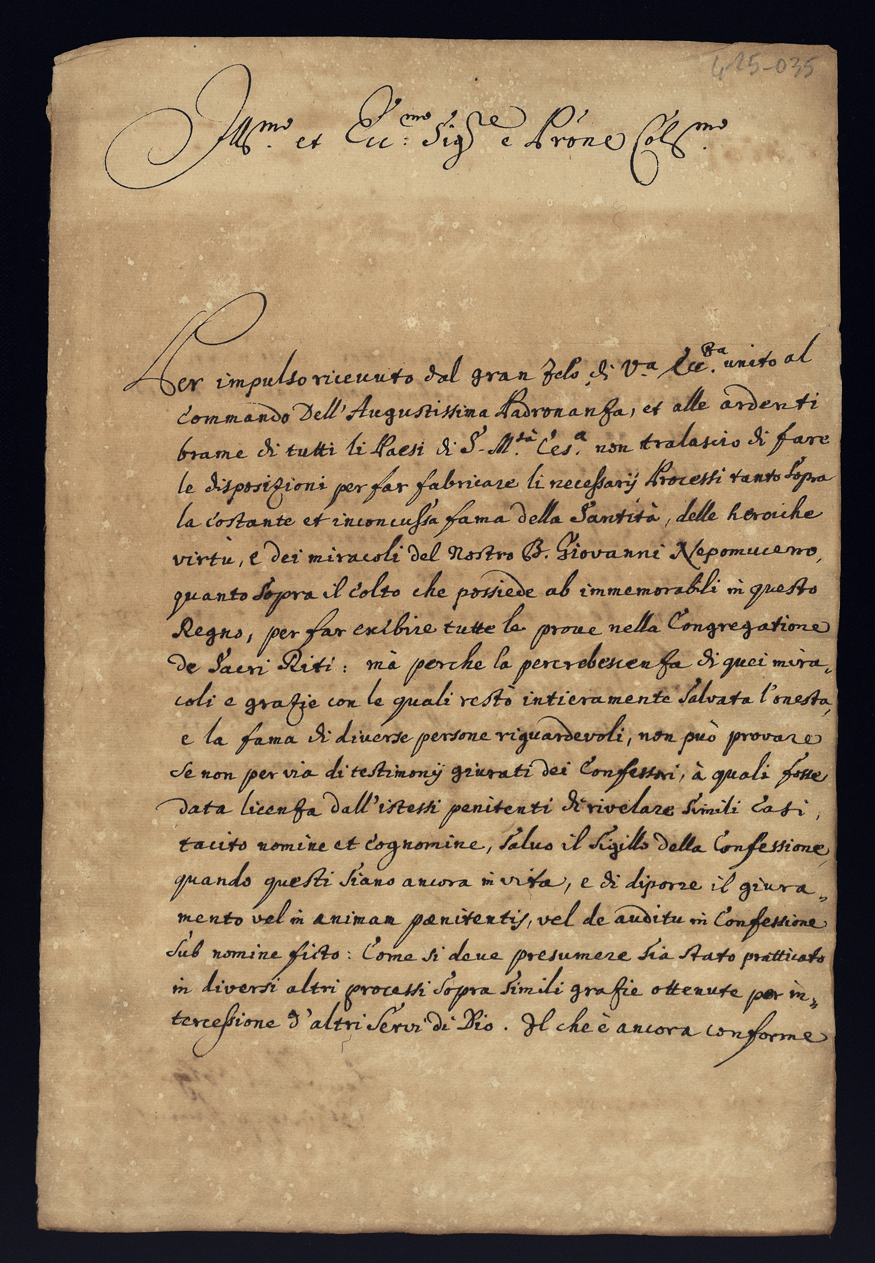 425-035
Ill.mo et Ecc.mo Sig.re e Prone Col.mo
Per impulso riceuuto dal gran zelo di V.a Ecc.za unito al
commando dell'Augustissima Padronanza, et alle ardenti
brame di tutti li Paesi di S. M.tà Ces.a non tralascio di fare
le disposizioni per far fabricare li necessarij Processi tanto sopra
la costante et inconcussa fama della Santità, delle heroiche
virtù, e dei miracoli del nostro B. Giovanni Nepomuceno,
quanto sopra il colto che possiede ab immemorabili in questo
Regno, per far exibire tutte le proue nella Congregatione
de Sacri Riti: mà perche la percrebescenza di quei mira,
coli e grazie con le quali restò intieramente salvata l'onesta,
e la fama di diverse persone riguardevoli, non può provare
se non per via di testimonij giurati dei Confessori, à quali fosse
data licenza dall'istessi penitenti di rivelare simili casi,
tacito nomine et cognomine, saluo il sigillo della Confessione
quando questi siano ancora in vita, e di diporre il giura„
mento vel in animam pænitentis, vel de auditu in Confessione
sub nomine ficto: Come si deue presumere sia stato pratticato
in diversi altri processi sopra simili grazie ottenute per in„
tercessione d'altri Servi di Dio. Il che è ancora conforme